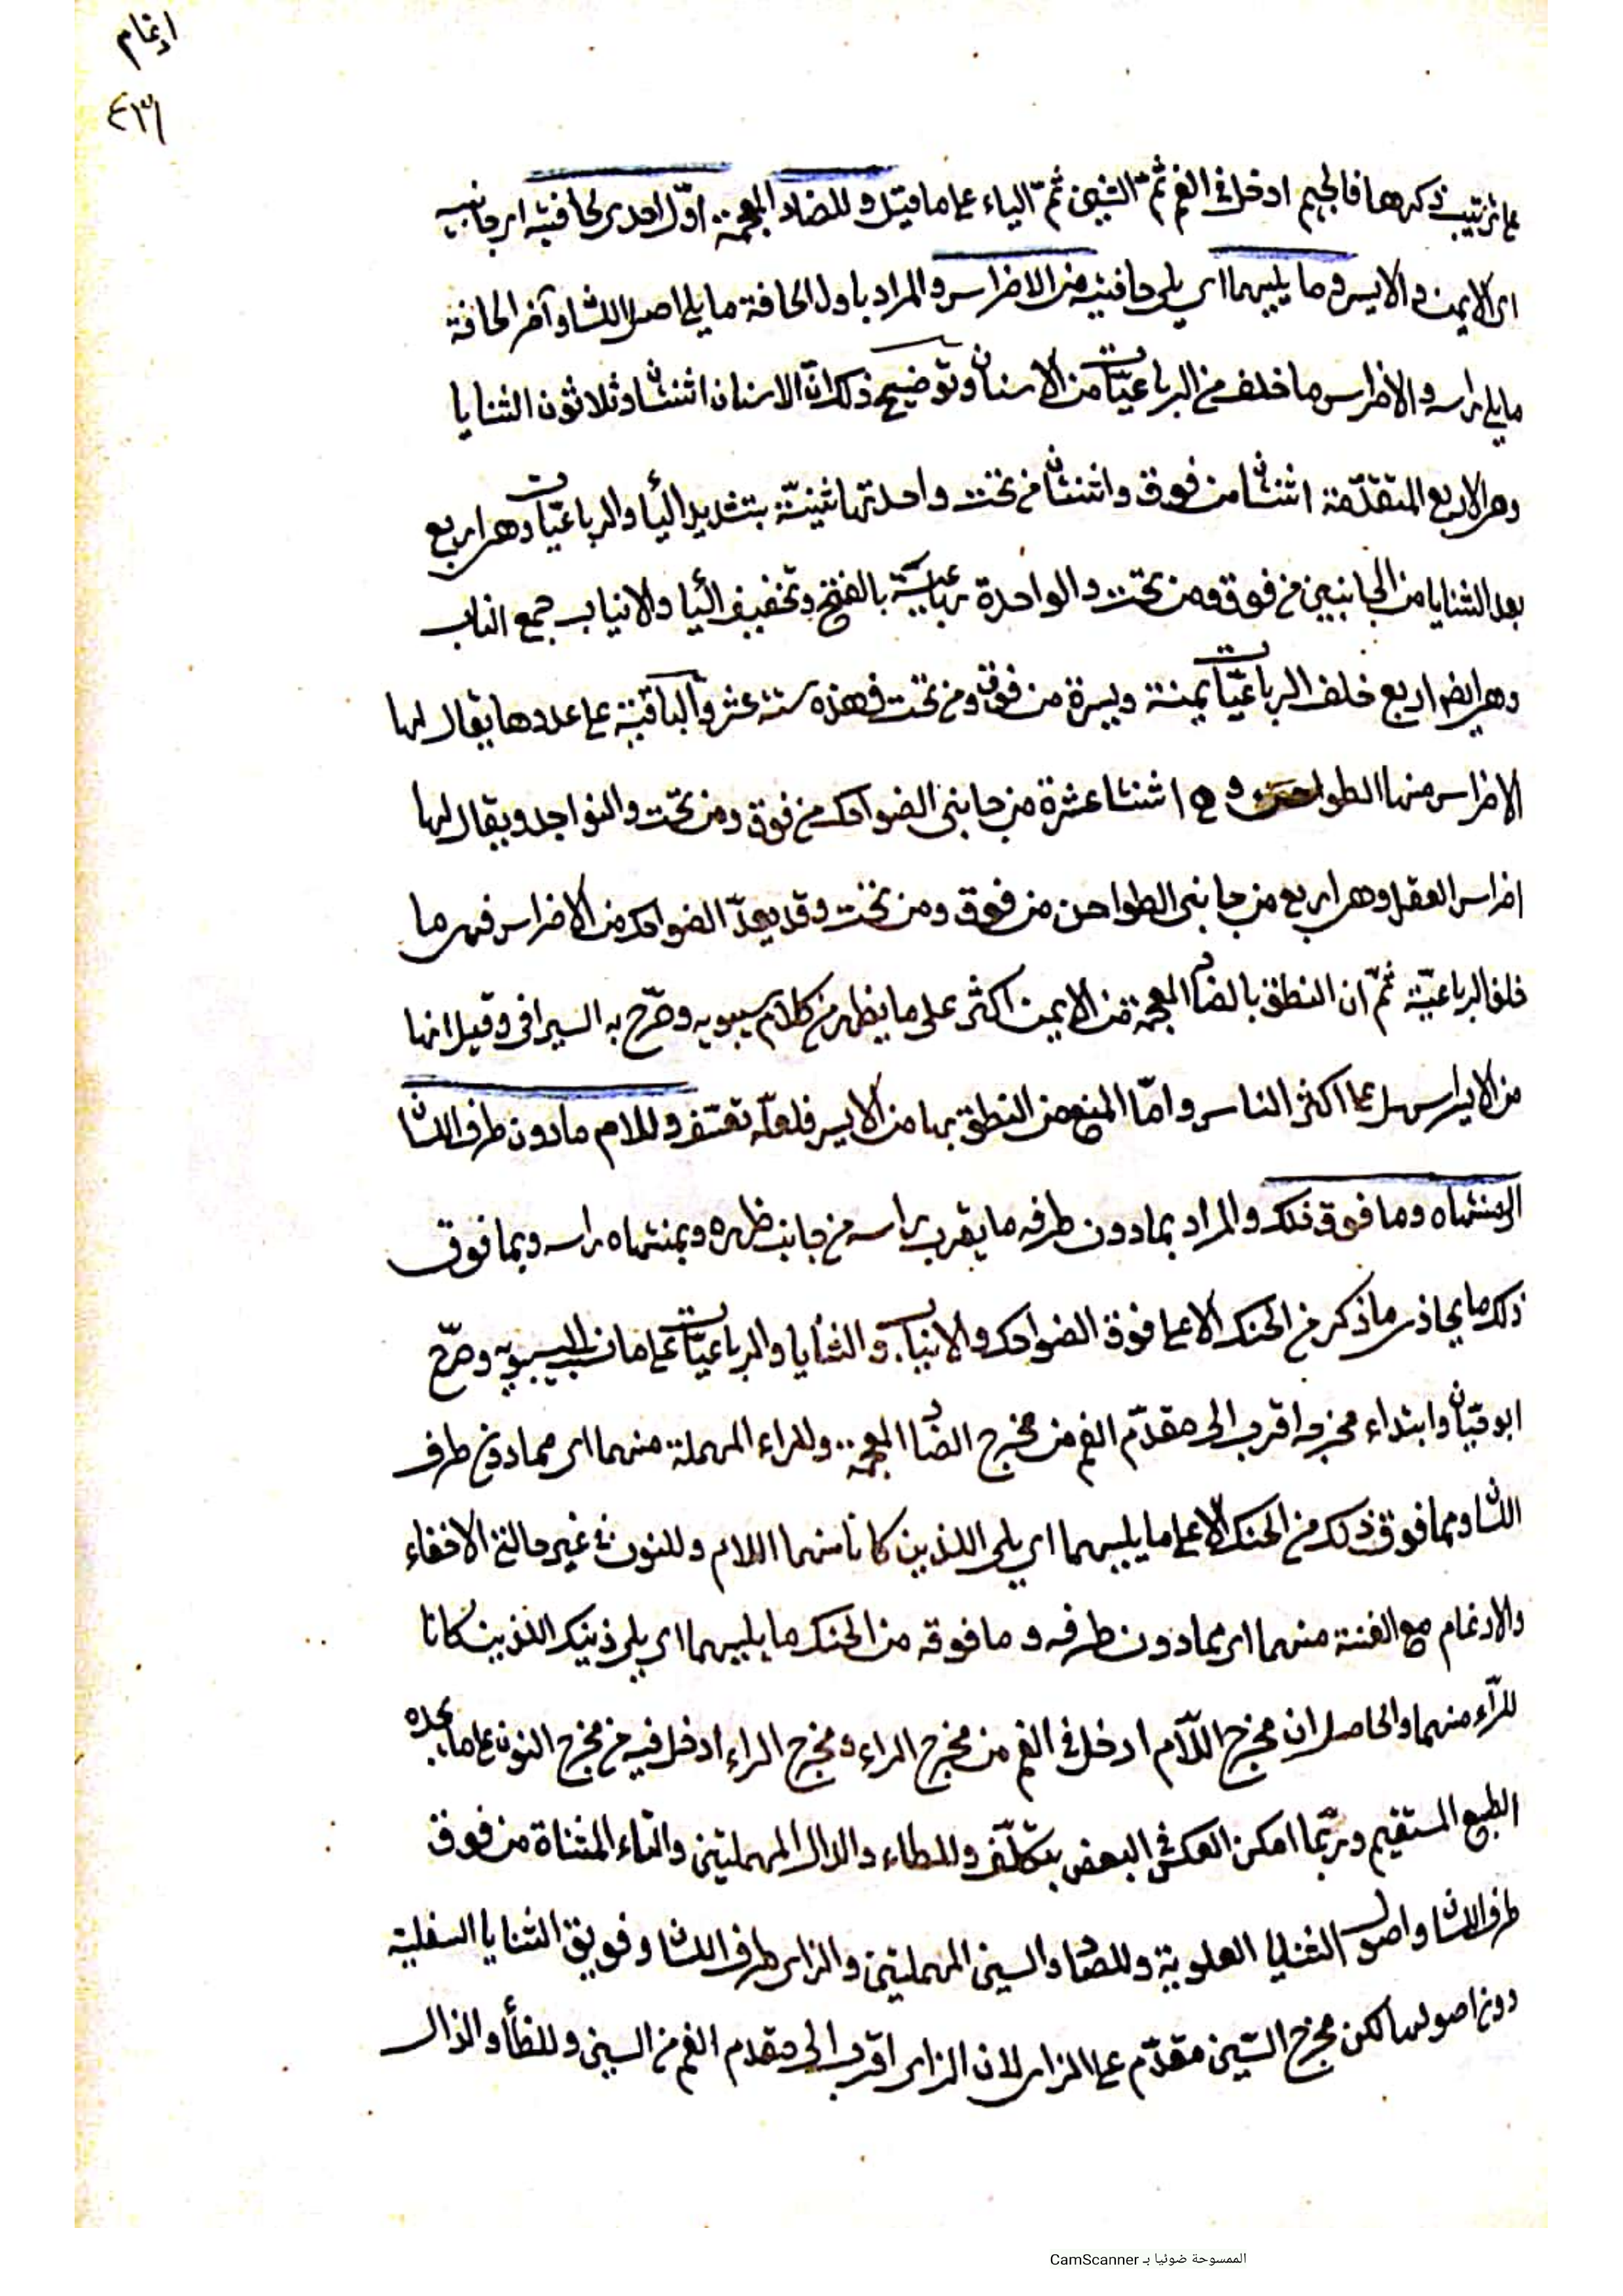 ادغام
٤٣١
على ترتيب ذكرها فالجيم ادخل في الفم ثم الشين ثم الياء على ما قيل وللضاد المعجمة اوّل احدى حافتيه اى جانبيه
اى الايمن والايسر وما يليهما اى يلى حافتيه من الاضراس والمراد باول الحافة ما يلى اصل اللسان وآخر الحافة
ما يلى راسه والاضراس ما خلف من الرباعيّات من الاسنان وتوضيح ذلك انّ الاسنان اثنتان وثلاثون الثنايا
وهى الاربع المتقدّمة اثنتان من فوق واثنتان من تحت واحدتها ثنيّة بتشديد اليا والرباعيّات وهى اربع
بعد الثنايا من الجانبين من فوق ومن تحت والواحدة رباعية بالفتح وتخفيف اليا والانياب جمع الناب
وهى ايضا اربع خلف الرباعيّات يمنة ويسرة من فوق ومن تحت فهذه ستة عشر والباقية على عددها يقال لها
الاضراس منها الطواحن وهى اثنتا عشرة من جانبى الضواحك من فوق ومن تحت والنواجد ويقال لها
اضراس العقل وهى اربع من جانبى الطواحن من فوق ومن تحت وقد يعدّ الضواحك من الاضراس فهى ما
خلف الرباعيّة ثمّ ان النطق بالضاد المعجمة من الايمن اكثر على ما يظهر من كلام سيبويه وصرّح به السيرافى وقيل انها
من الايسر اسهل على اكثر الناس وامّا المنع من النطق بها من الايسر فلعلّه تعسّف وللام ما دون طرف اللسان
الى منتهاه وما فوق ذلك والمراد بما دون طرفه ما يقرب براسه من جانب ظهره وبمنتهاه راسه وبما فوق
ذلك ما يحاذى ما ذكر من الحنك الاعلى فوق الضواحك والانياب والثنايا والرباعيّات على ما نسب الى سيبويه وصرّح
ابو حيّان وابتداء مخرجه اقرب الى مقدّم الفم من مخرج الضاد المعجمة وللراء المهملة منهما اى مما دون طرف
اللسان ومما فوق ذلك من الحنك الاعلى ما يليهما اى يلى اللذين كانا منهما اللام وللنون فى غير حالتى الاخفاء
والادغام مع الغنة منهما اى مما دون طرفه وما فوقه من الحنك ما يليهما اى يلى ذينك اللذين كانا
للرّاء منهما والحاصل ان مخرج اللّام ادخل فى الفم من مخرج الراء ومخرج الراء ادخل فيه من مخرج النون على ما يجده
الطبع المستقيم وربّما امكن العكس فى البعض بتكلّف وللطاء والدال المهملتين والتاء المثناة من فوق
طرف اللسان واصول الثنايا العلوية وللصاد والسين المهملتين والزاى طرف اللسان وفويق الثنايا السفلية
دون اصولها لكن مخرج السّين مقدّم على الزاى لان الزاى اقرب الى مقدم الفم من السين وللظأ والذال
الممسوحة ضوئيا بـ CamScanner